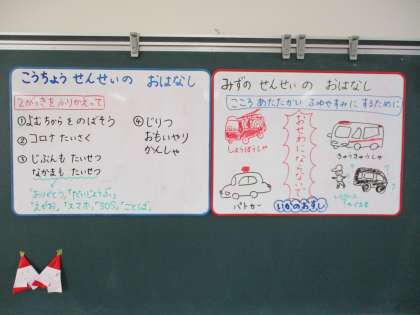 こうちょう せんせいの おはなし
2がっきをふりかえって
①よむちからをのばそう
②コロナたいさく
③じぶんも たいせつ
なかまも たいせつ
④じりつ
おもいやり
かんしゃ
「ありがとう」「だいじょうぶ」
「えがお」「スマホ」「SOS」「ことば」
みずの せんせいの おはなし
こころ あたたかい ふゆやすみに するために
おせわにならないで
しょうぼうしゃ
きゅうきゅうしゃ
パトカー
いかのおすし